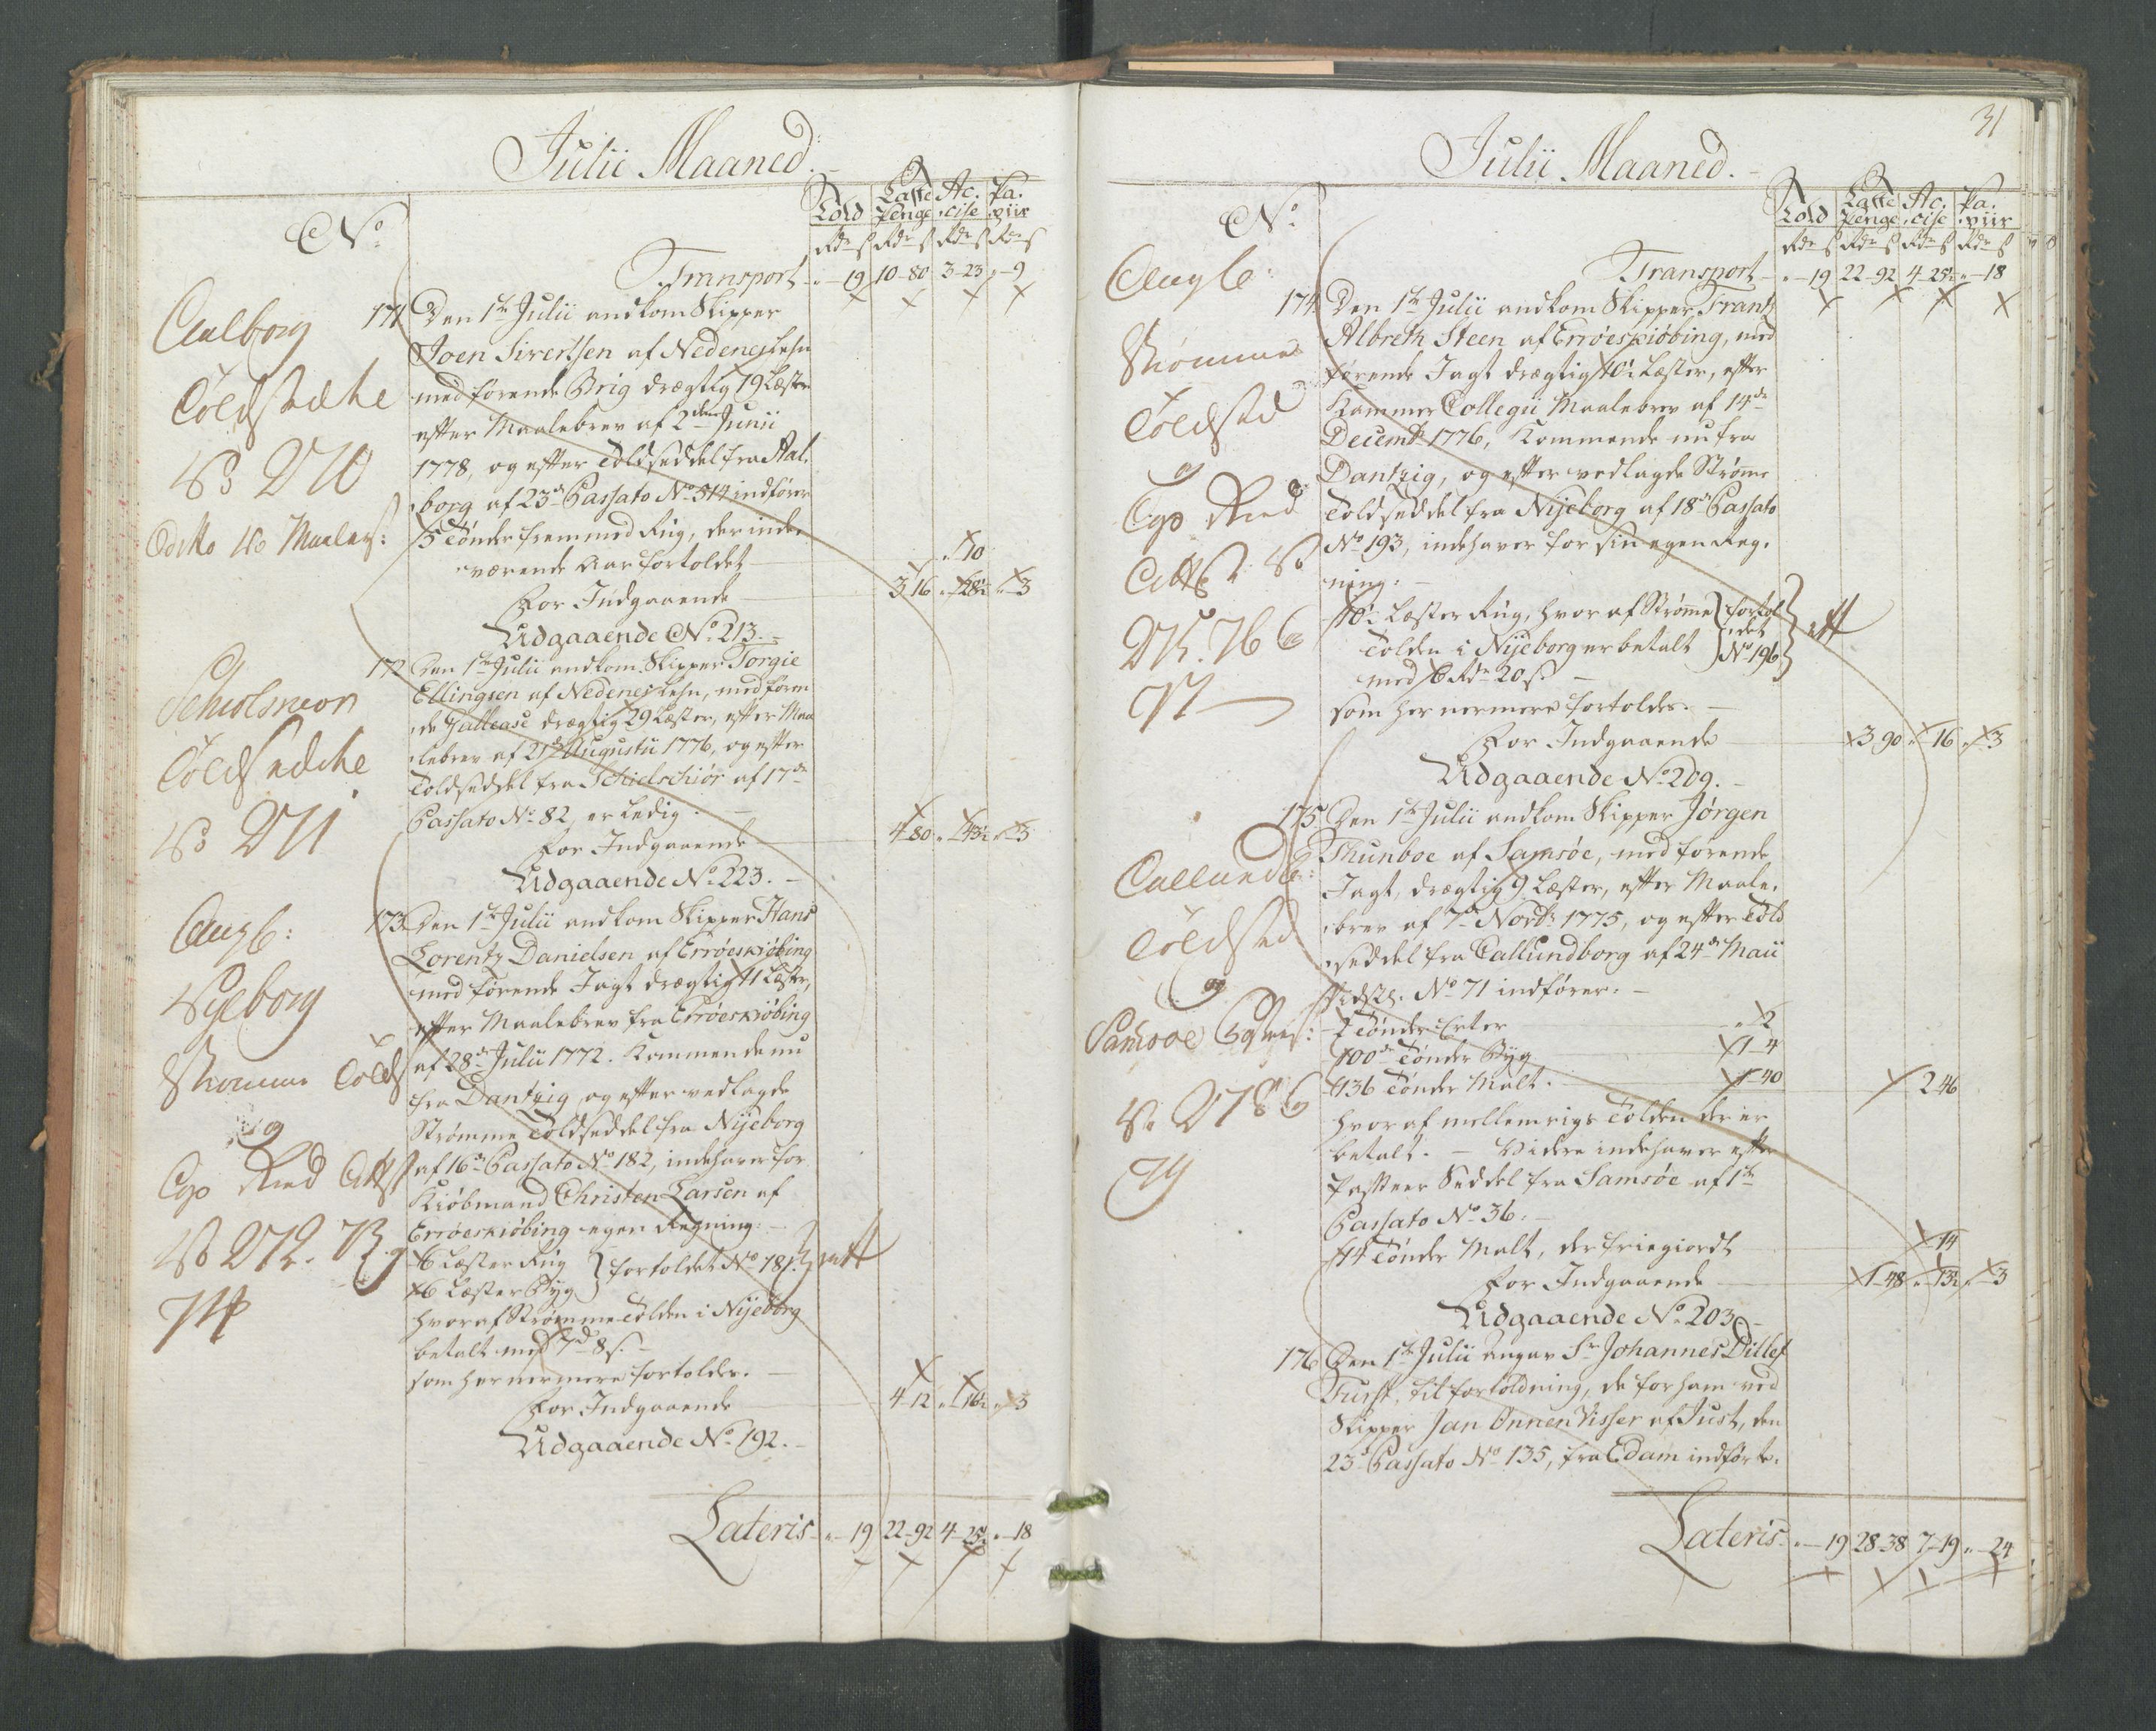 Julii Maaned.
No
Told
Laste Penge
Ac: cise
Pa: piir
Rdr ß Rdr ß Rdr ß Rdr ß
Transport - " - 19 10 - 80 3 - 23 " - 9
Aalborg
Toldseddel
No 270
171 Den 1te Julii andkom Skipper
Joen Sivertsen af Nedenes Lehn
med førende Brig drægtig 19 Læster
efter Maalebrev af 2den Junii
1778, og efter Toldseddel fra Aal,
borg af 23de Passato No 514 indfører
5 Tønder fremmed Rug, der inde,
værende Aar fortoldet " 10
For Indgaaende 3 16 " - 28½ " - 3
Udgaaende No 213.
Toldseddel
No 271
172 Den 1te Julii andkom Skipper Torgie
Ellingsen af Nedenes Lehn, med føren
de Gallease drægtig 29 Læster, efter Maa
lebrev af 21de Augustii 1776, og efter
Toldseddel fra Schielschiør af 17de
Passato No 82, er Ledig.
For Indgaaende 4 - 80 " - 43½ " - 3
Udgaaende No 223.
Nyeborg
Strømme Tolds
og
No 272. 73 og
74
173 Den 1te Julii andkom Skipper Hans
Lorentz Danielsen af Errøeskiøbing
med førende Jagt drægtig 11 Læster,
efter Maalebrev fra Errøeskiøbing
af 28de Julii 1772. Kommende nu
fra Dantzig og efter vedlagde
Strømme Toldseddel fra Nijeborg
af 16de Passato No 182, indehaver for
Kiøbmand Christen Larsen af
Errøeskiøbing egen Regning:
6 Læster Rug
6 Læster Byg } fortoldet No 181.
hvoraf Strømme Tolden i Nijeborg
betalt med 7 d 8 ß.
som her nermere fortoldes.
For Indgaaende 4 - 12 " - 16½ " - 3
Udgaaende No 192.
Lateris - " - 19 22 - 92 4 - 25½ " - 18
31
Julii Maaned.
No
Told
Laste Penge
Ac: cise
Pa: piir
Rdr ß Rdr ß Rdr ß Rdr ß
Transport - " - 19 22 - 92 4 - 25½ " - 18
Strømme
Toldsed
og
No
275. 76 &
77
174 Den 1te Julii andkom Skipper Frantz
Albreth Steen af Errøeskiøbing, med
førende Jagt drægtig 10½ Læster, efter
Kammer Collegii Maalebrev af 14de
Decembr 1776, Kommende nu fra
Dantzig, og efter vedlagde Strømme
Toldseddel fra Nijeborg af 18de Passato
No 193, indehaver for sin egen Reg,
ning:
10½ Læster Rug, hvoraf Strømme } fortol
Tolden i Nijeborg er betalt } det
med 6 Rdr 20 ß. No 196
som her nermere fortoldes.
For Indgaaende 3 90 " 16 " - 3
Udgaaende No 209.
Callundb:
Toldsed
og
Samsøe
No 278 &
79
175 Den 1te Julii andkom Skipper Jørgen
Thunboe af Samsøe, med førende
Jagt, drægtig 9 Læster, efter Maale,
brev af 7de Novbr 1775, og efter Told
seddel fra Callundborg af 24de Maii
sidstl. No 71 indfører:
2 Tønder Erter " 2
100de Tønder Byg 1 - 4
136 Tønder Malt. 1 - 40 2 46
hvoraf mellemrigs Tolden der er
betalt. - Videre indehaver efter
Passeer Seddel fra Samsøe af 1te
Passato No 36.
14 Tønder Malt, der friegiordt 14
For Indgaaende 1 - 48 " - 13½ " - 3
Udgaaende No 203.
176 Den 1te Julii angav Sr Johannes Ditlef
Furst, til fortoldning, de for ham ved
Skipper Jan Onnen Visser af Just, den
23de Passato No 135, fra Edam indførte.
Lateris - " - 19 28 - 38 7 - 19 " - 24